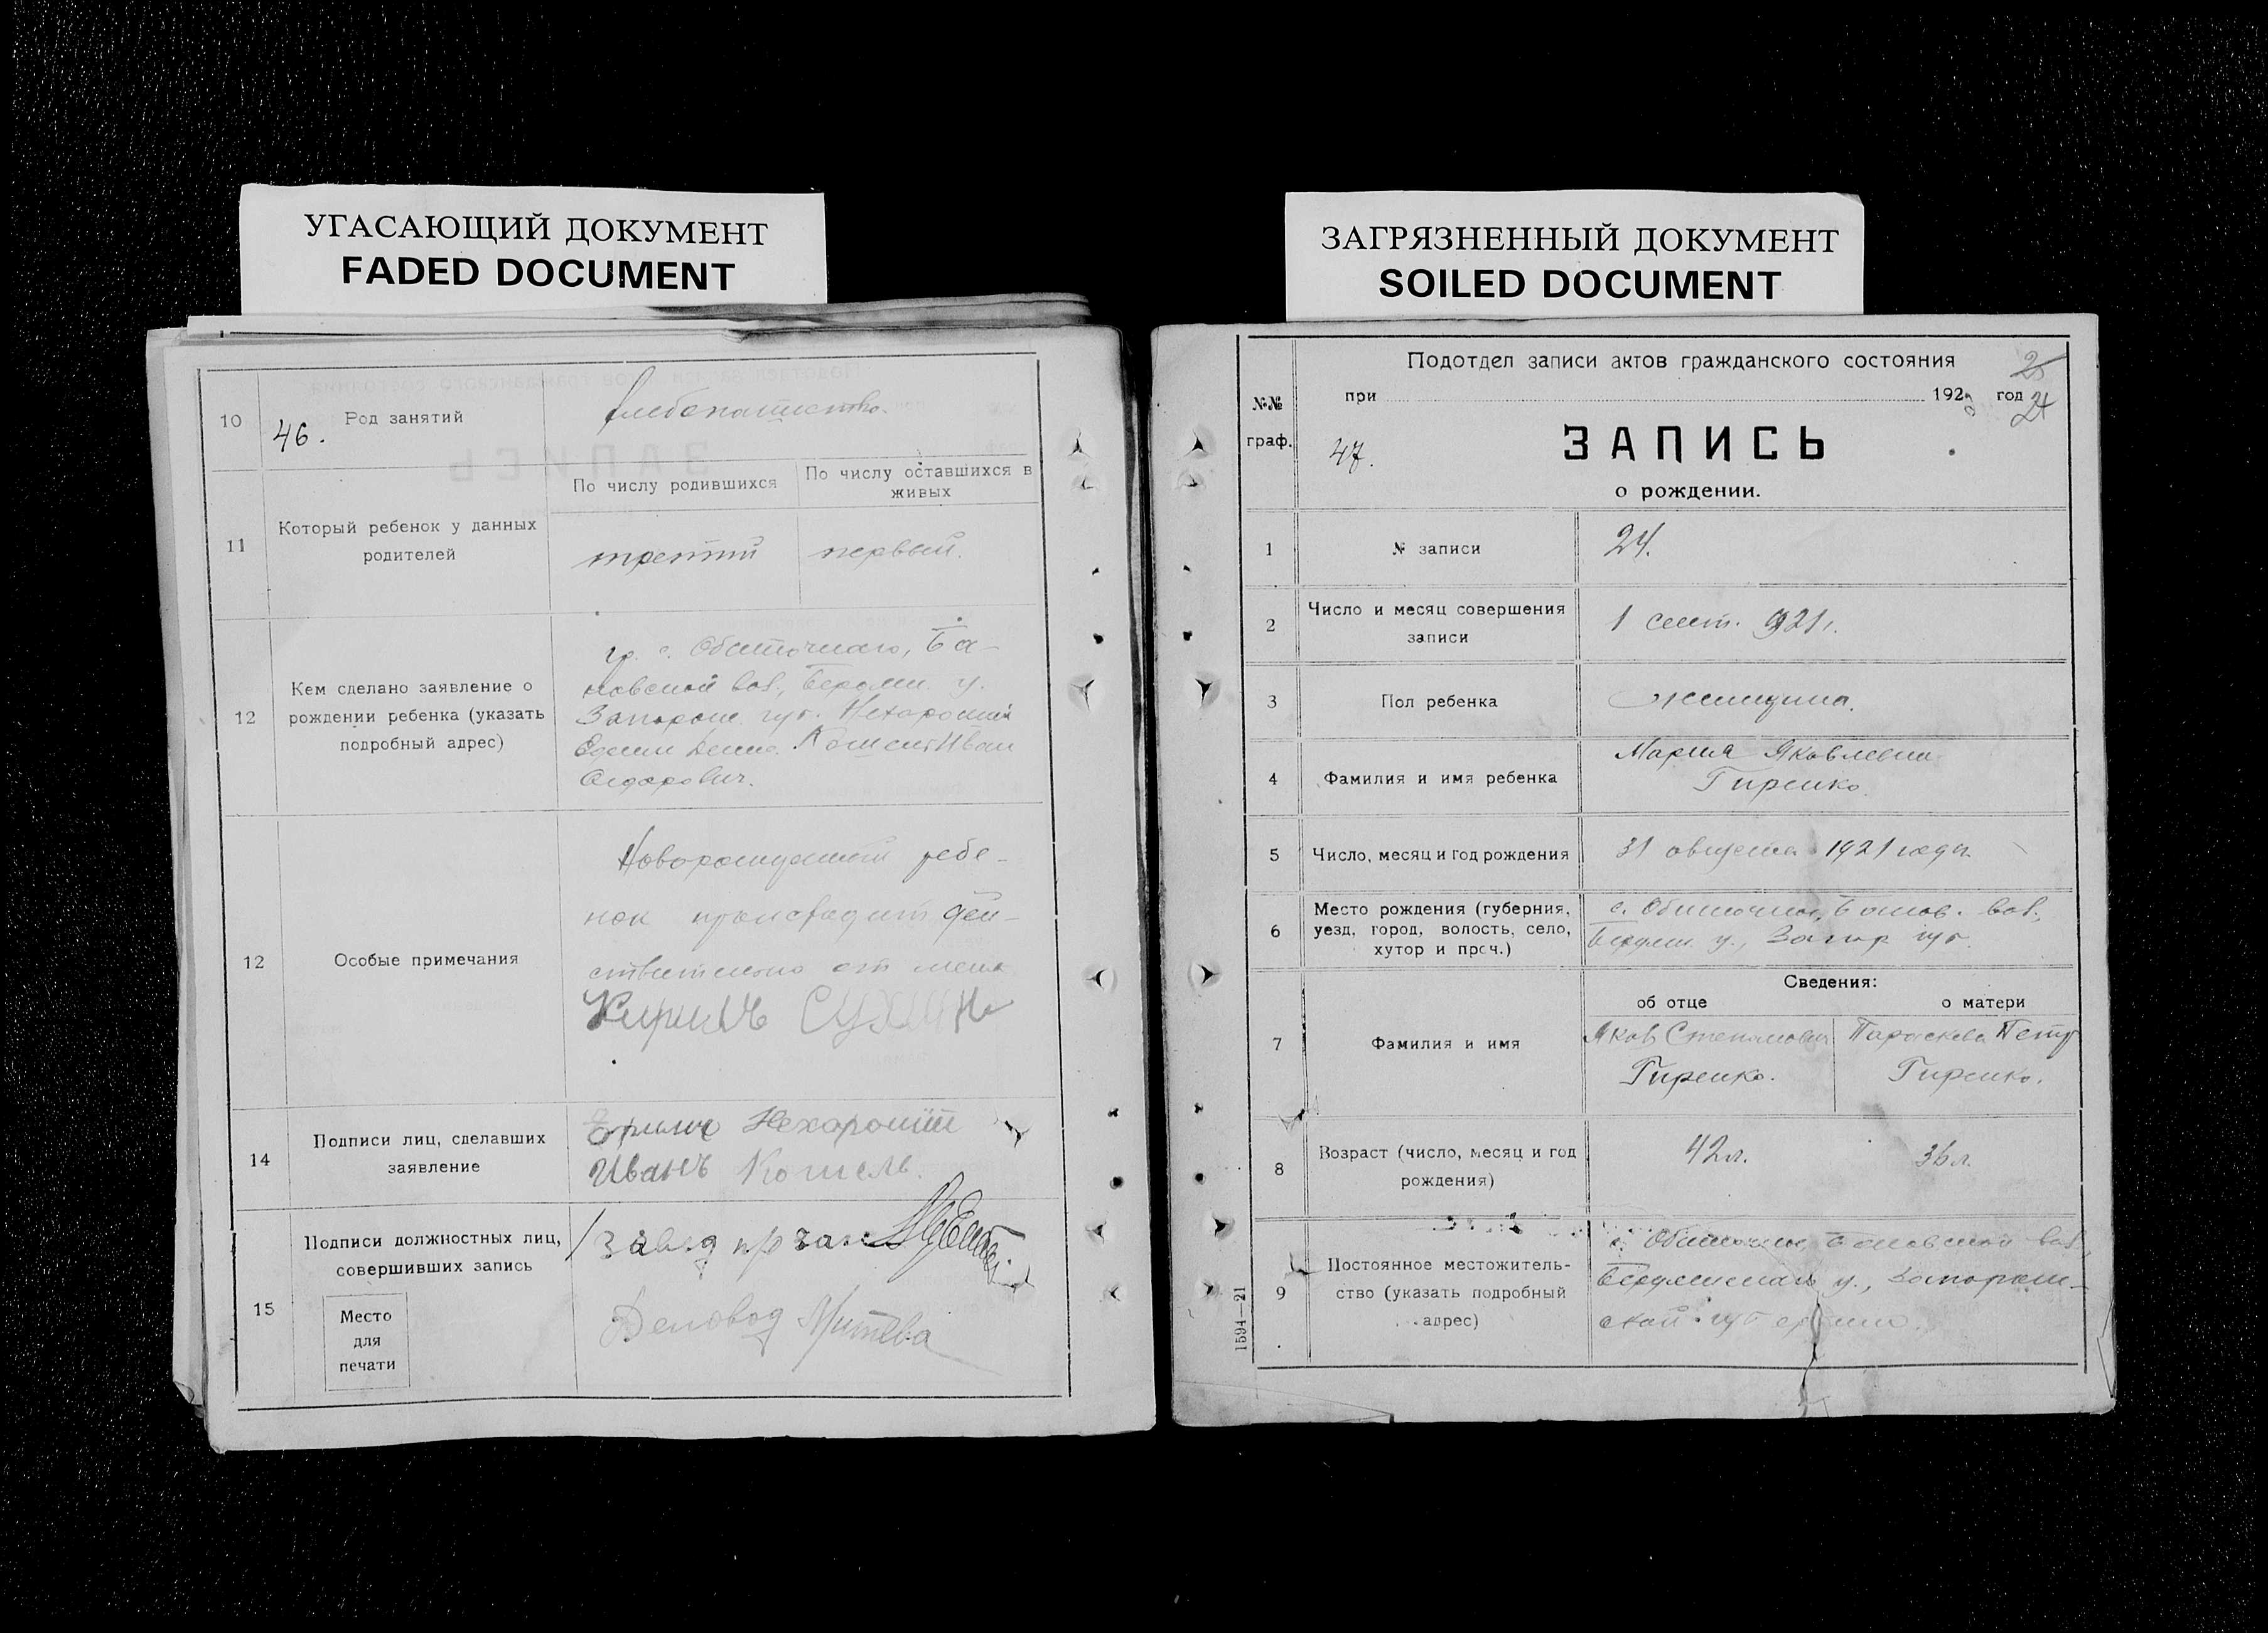 УГАСАЮЩИЙ ДОКУМЕНТ
FADED DOCUMENT
10
46.
Род занятий
хлебопашество.
11
Который ребенок у данных
родителей
По числу родившихся
По числу оставшихся в
живых
третий
первый.
12
Кем сделано заявление о
рождении ребенка (указать
подробный адрес)
гр. с. Обиточного, Ба-
новской вол., Бердян. у.
Запорож. губ. Нехороший
Иван
Сидорович.
12
Особые примечания
Новорожденный ребе-
нок происходит дей-
ствительно от меня
14
Подписи лиц, сделавших
заявление
Нехороший
Иванъ Котель.
15
Подписи должностных лиц,
совершивших запись
Место
для
печати
Завед
Деловод
ЗАГРЯЗНЕННЫЙ ДОКУМЕНТ
SOILED DOCUMENT
№№
граф.
Подотдел записи актов гражданского состояния
25
при 192 год
24
47.
ЗАПИСЬ
о рождении.
1
№ записи
24.
2
Число и месяц совершения
записи
1 сент. 921 г.
3
Пол ребенка
Женщина.
4
Фамилия и имя ребенка
Мария Яковлевна
Гиренко.
5
Число, месяц и год рождения
31 августа 1921 года
6
Место рождения (губерния,
уезд, город, волость, село,
хутор и проч.)
с. Обиточное, Банов. вол.,
Бердян. у., Запор губ.
Сведения:
об отце
о матери
7
Фамилия и имя
Яков Степанович
Гиренко.
Параскева Петр
Гиренко.
8
Возраст (число, месяц и год
рождения)
42 л.
36 л.
9
Постоянное местожитель-
ство (указать подробный
адрес)
с. Обиточное, Бановской вол.,
Бердянская у., Запорож-
ской губернии.
1594—21